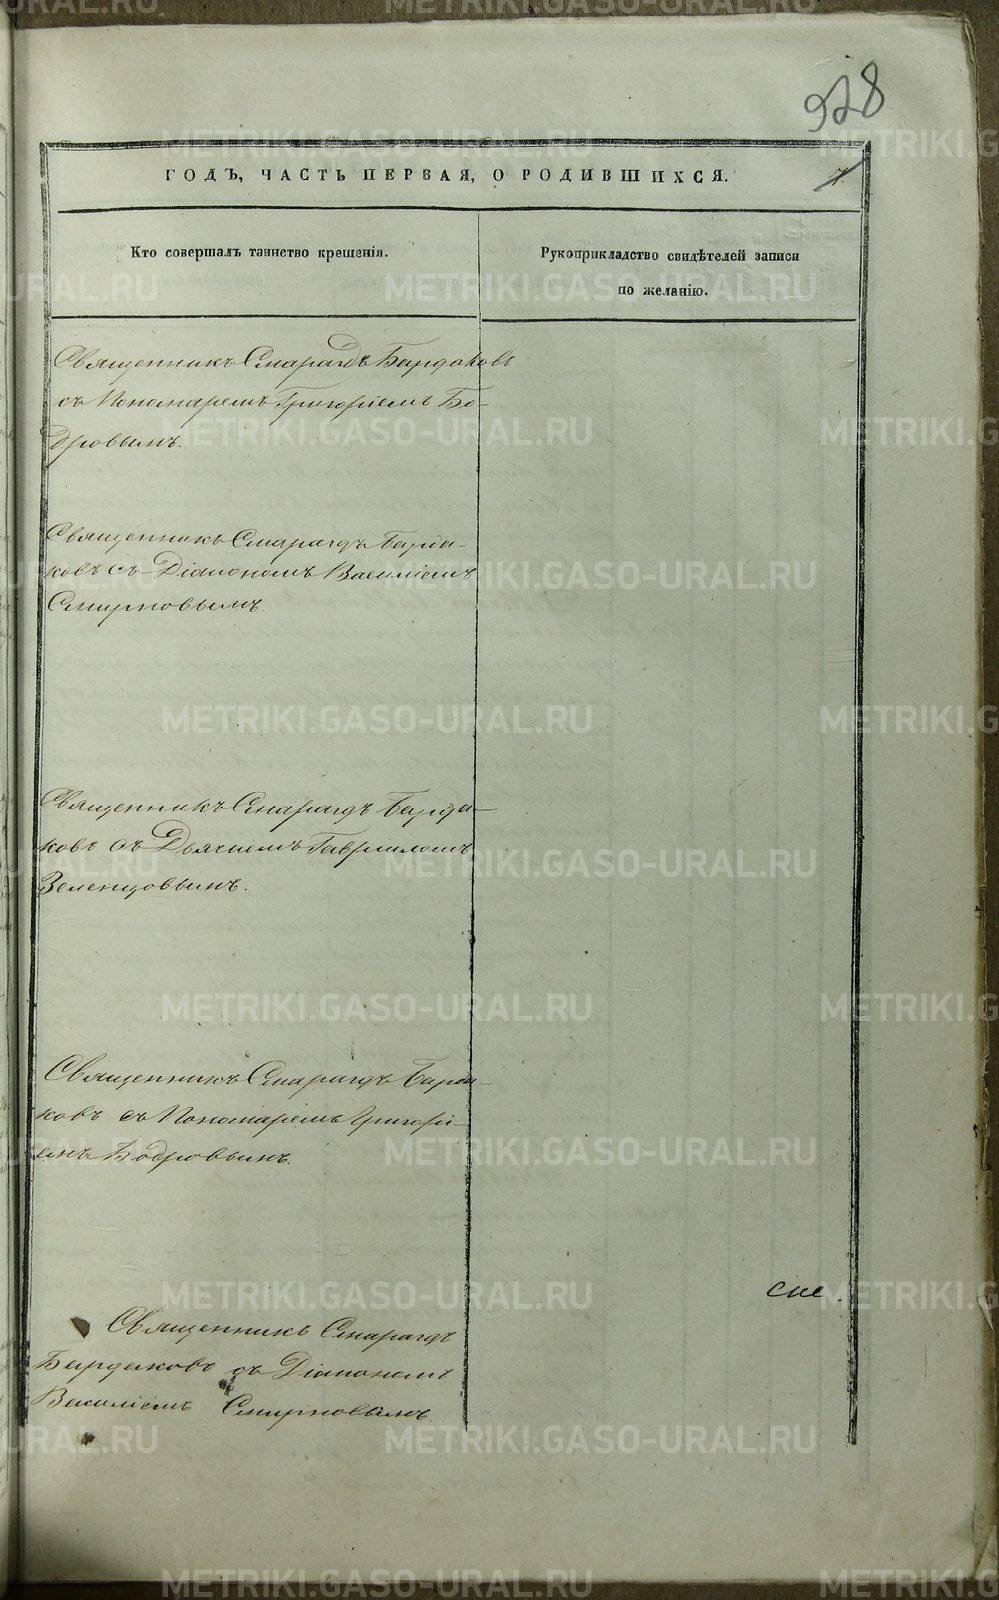 928
ГОДЪ, ЧАСТЬ ПЕРВАЯ, О РОДИВШИХСЯ. 7.
Кто совершалъ таинство крещенія.
Рукоприкладство свидѣтелей записи
по желанію.
Священникъ Смарагдъ Бардаковъ
съ Пономаремъ Григоріемъ Бо-
дровымъ.
Священникъ Смарагдъ Барда-
ковъ съ Діакономъ Василіемъ
Смирновымъ.
Священникъ Смарагдъ Барда-
ковъ съ Дьячкомъ Гавриломъ
Зеленцовымъ.
Священникъ Смарагдъ Барда-
ковъ съ Пономаремъ Григорі-
емъ Бодровымъ.
Священникъ Смарагдъ
Бардаковъ съ Діакономъ
Василіемъ Смирновымъ
METRIKI.GASO-URAL.RU